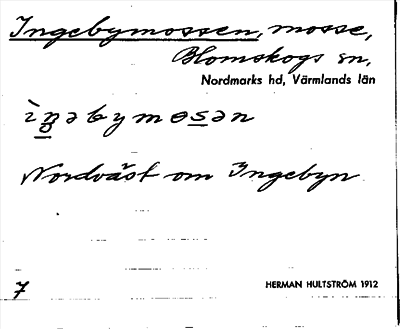 Ingebymossen, mosse,
Blomskogs sn,
Nordmarks hd, Värmlands län
ìŋəbymosən
Nordväst om Ingebyn
7
HERMAN HULTSTRÖM 1912